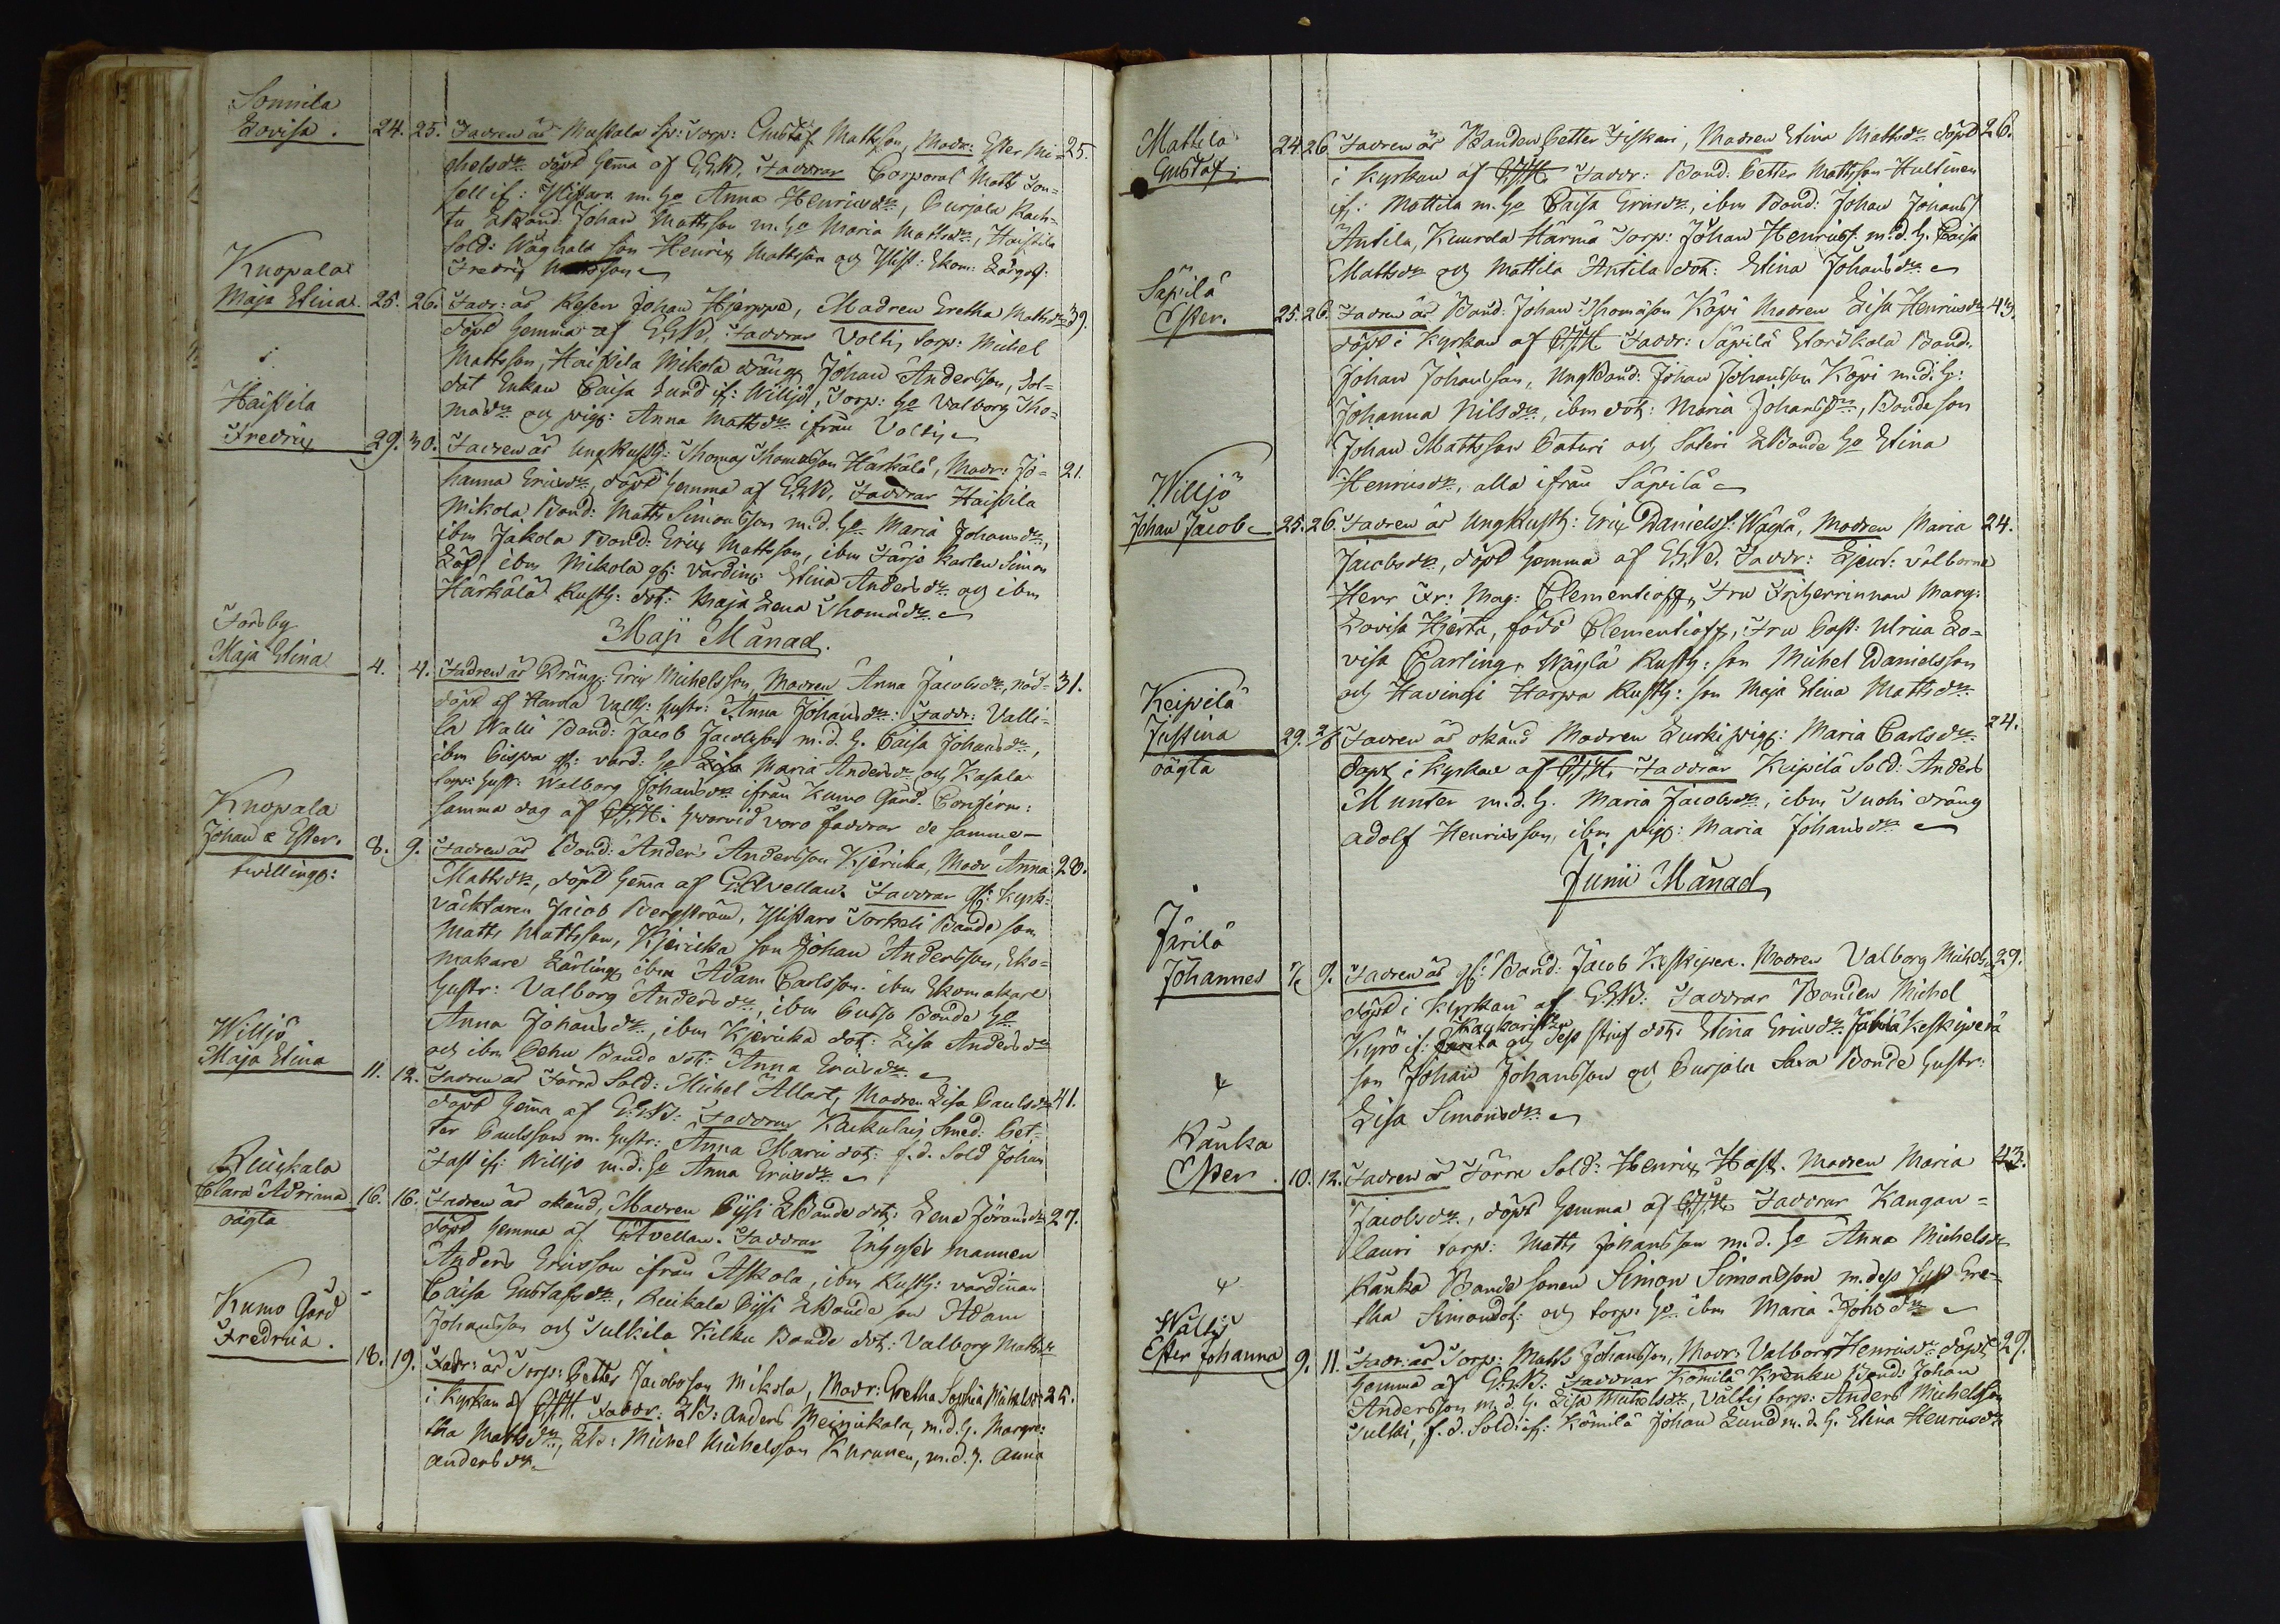 Sonnila
Lovisa. 24. 25. Fadren är Mustala Sp: Torp: Gustaf Mattsson, Modr: Ester Mi= 25.
chelsdr döpt hema af G.E.B. Faddrar Corporal Matts Son=
nell if: Ylistara m. ho Anna Henricsdr, Purjala Rach=
tu LBond: Johan Mattsson m. ho Maria Mattsdr, Haistila
Sold: Waghals son Henric Mattsson och Ylist: Skom: Lärgoss:
Fredric
Knopala
Maja Stina. 25. 26. Fadr: är Reserv Johan Hjerppe, Madren Gretha Mattsdr 39.
döpt hemma af G.E.B. Faddrar Voltis Torp: Michel
Mattsson, Haistila Mikola dräng Johan Andersson, Sol=
dat Enkan Caisa Lund if: Willjo, Torp: ho Valborg Tho=
madr och pig: Anna Mattsdr ifrån Voltis
Haistila
Fredric 29. 30. Fadren är Ung Rusth: Thomas Thomasson Härkälä, Modr: Jo= 21.
hanna Ericsdr, döpt hemma af G.E.B. Faddrar Haistila
Mikola Bond: Matts Simonsson m.d. ho Maria Johansdr,
ibm Jakola Bond: Eric Mattsson, ibm Färjo Karlen Simon
Löf ibm Mikola gl: värdin: Stina Andersdr och ibm
Härkälä Rusth: dot: Maja Lena Thomadr
Maji Månad.
Forsby
Maja Stina 4. 4. Fadren är Dräng: Eric Michelsson, Modren Anna Jacobsdr, nöd= 31.
döpt af Harola Vallh: hustr: Anna Johansdr: Faddr: Valli=
la Walli Bond: Jacob Jacobsson m.d. h. Caisa Johansdr,
ibm Pispa gl: värd: ho Maria Andersdr och Kasala
Torp: hust: Walborg Johansdr ifrån Kumo Gård. Confirm:
samma dag af hvarvid voro faddrar de samme
Knopala
Johan & Ester. 8. 9. Fadren är Bond: Anders Andersson Kjericka, Modr Anna 20.
twilling:
Mattsdr, döpt hema af G. Avellan. Faddrar gl: Kyrk=
väcktaren Jacob Bergström, Ylistaro Torkeli Bonde son
Matts Mattsson, Kjericka son Johan Andersson, Sko=
makare Lärling ibm Adam Carlsson. ibm Skomakare
hustr: Valborg Andersdr, ibm Bonde ho
Anna Johansdr, ibm Kjericka dot: Lisa Andersdr
och ibm Pehu Bonde dot: Anna Ericsdr
Willjo
Maja Stina 11. 12. Fadren är Förra Sold: Michel Allart, Modren Lisa Paulsdr 41.
döpt hema af G.E.B. Faddrar Kackulais Smed: Pet=
ter Paulsson m. hustr: Anna Maria dot: f.d. Sold Johan
Fast if: Willjo m.d. ho Anna Ericsdr
Kuiskala
Clara Adriana 16. 16. Fadren är okänd, Madren Pijsi LBonde dot: Lena Jöransdr 27.
oägta
döpt hemma af G. Avellan. Faddrar Inhyses mannen
Anders Ericsson ifrån Askola, ibm Rusth: värdinan
Caisa Gustafsdr, Kuikala Pijsi LBonde son Adam
Johansson och Tulkila Kilku Bonde dot: Valborg Mattsdr
Kumo Gård
Fredrica. 18. 19. Fadr: är Torp: Petter Jacobsson Mikola, Modr: Gretha Sophia Michelsdr 25.
i Kyrkan af Faddr: LB: Anders Meinikala, m.d.h. Margre=
tha Mattsdr, LB: Michel Michelsson Kurunen, m.d.h. Anna
Andersdr
Mattila
Gustaf. 24 26 Fadren är Bonden Petter Fiskari, Madren Stina Mattsdr döpt 26.
i Kyrkan af Faddr: Bond: Petter Mattsson Hultinen
if: Mattila m. ho Caisa Ericsdr, ibm Bond: Johan Johans
Antila, Kuurola Härmä Torp: Johan Henrics: m.d.h. Caisa
Mattsdr och Mattila Antila dot: Stina Johansdr
Säpilä
Ester. 25. 26. Fadren är Bond: Johan Thomasson Köpi Modren Lisa Henricsdr 43.
döpt i Kyrkan af Faddr: Säpilä Storskola Bond:
Johan Johansson, Ung Bond: Johan Johansson Köpi m.d.h:
Johanna Nilsdr, ibm dot: Maria Johansdr, Bonde son
Johan Mattsson Paturi och Sateri LBonde ho Stina
Henricsdr, alla ifrån Säpilä
Willjo
Johan Jacob 25. 26. Fadren är Ung Rusth: Eric Daniels: Wäylä, Modren Maria 24.
Jacobsdr, döpt hemma af G.E.B. Faddr: Lieut: välborne
Herr Fr: Mag: Clementeoff, Fru Friherrinnan Marg:
Lovisa Hjerta, född Clementeoff, Fru Past: Ulrica Lo=
visa Carling, Wäylä Rusth: son Michel Danielsson
och Havingi Harpa Rusth: son Maja Stina Mattsdr
Keipilä
Justina 29. 2/6 Fadren är okänd Modren Lurki pig: Maria Carlsdr 24.
oägta
döpt i Kyrkan af Faddrar Keipilä Sold: Anders
Munter m.d.h. Maria Jacobsdr, ibm Suohi dräng
Adolf Henricsson, ibm pig: Maria Johansdr
Junii Månad
Järilä
Johannes 7. 9. Fadren är gl: Bond: Jacob Keskipere. Modren Valborg Michelsdr 29.
döpt i Kyrkan af G.E.B: Faddrar Bonden Michel
Kyrö if: och dess stjuf dot: Stina Ericsdr. Järilä Keskiperä
son Johan Johansson och Purjala Sara Bonde hustr:
Lisa Simonsdr
Ranka
Ester. 10. 12. Fadren är Förra Sold: Henric Hast. Modren Maria 43.
Jacobsdr, döpt hemma af Faddrar Kangan=
lauri Torp: Matts Johansson m.d. ho Anna Michelsdr
Ranka Bonde sonen Simon Simonsson m. dess syst Gre=
tha Simonsdot: och torp: ho ibm Maria Johsdr
Wältis
Ester Johanna 9. 11. Fadr: är Torp: Matts Johansson, Modr: Valborg Henricsdr döpt 29.
hemma af G.E.B: Faddrar Kömilä Kronku Bond: Johan
Andersson m.d.h. Lisa Michelsdr, Vältis torp: Anders Michelsson
Tulkki, f.d. Sold: if: Kömilä Johan Lund m.d.h. Stina Henricsdr